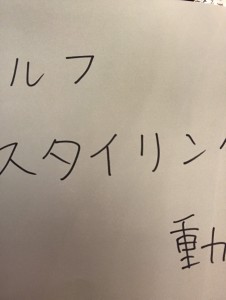 ルフ
スタイリン
動